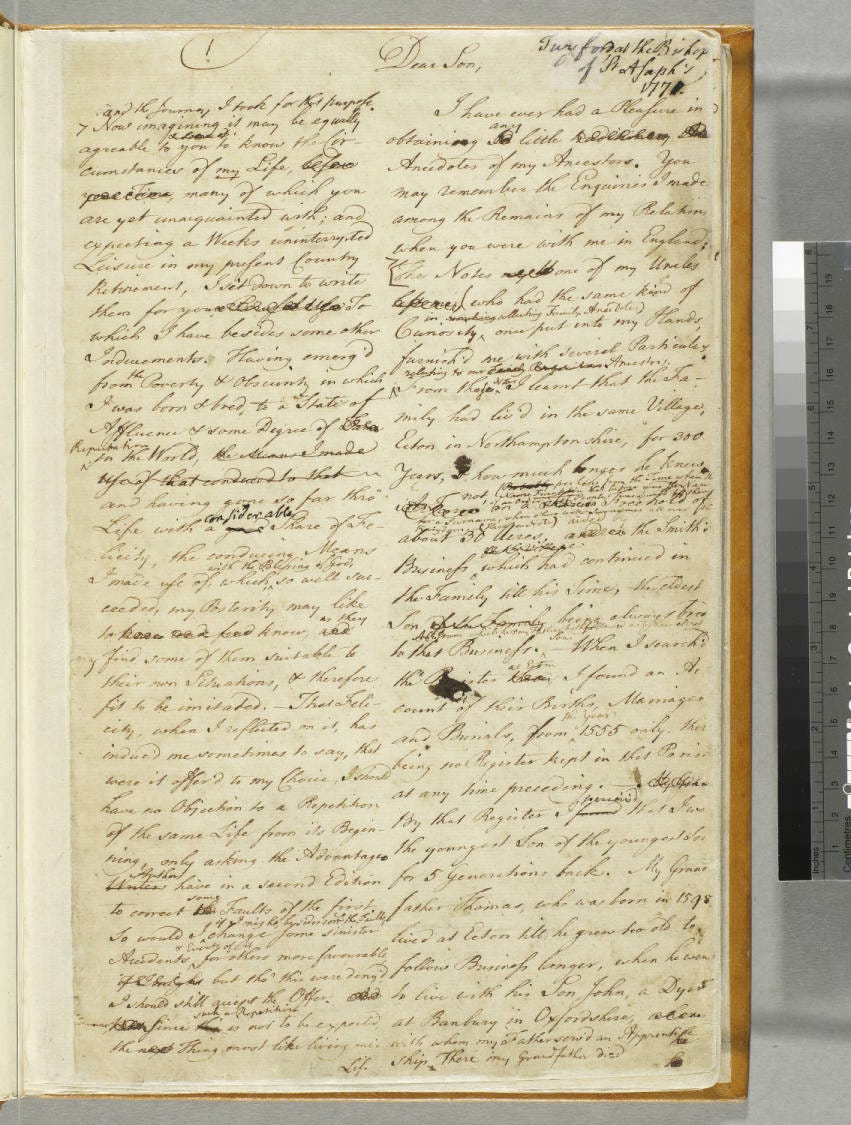 1
Dear Son,
Twyford, at the Bishop
of St Asaph's,
1771.
I have ever had a Pleasure in
any
obtaining little
Anecdotes of my Ancestors. You
may remember the Enquiries I made
among the Remains of my Relations
when you were with me in England;
The Notes one of my Uncles
(who had the same kind of
in collecting Family Anecdotes)
Curiosity once put into my Hands,
furnish'd me with several Particulars
relating to our Ancestors.
From these Notes I learnt that the Fa-
mily had liv'd in the same Village,
Ecton in Northamptonshire, for 300
Years, & how much longer he knew
not,
on a Freehold of
about 30 Acres, aided by the Smith's
Business which had continued in
the Family till his Time, the eldest
Son of the Family being always bred
to that Business. — When I search'd
at Ecton
the Register I found an Ac-
count of their Births, Marriages
the Year
and Burials, from 1555 only, there
being no Register kept in that Parish
at any time preceding. —
perceiv'd
By that Register I found that I was
the youngest Son of the youngest Son
for 5 Generations back. My Grand
father Thomas, who was born in 1598
lived at Ecton till he grew too old to
follow Business longer, when he went
to live with his Son John, a Dyer
at Banbury in Oxfordshire,
with whom my Father serv'd an Apprentice
ship. There my Grandfather died
and the Journey I took for that purpose.
Now imagining it may be equally
agreeable to you to know the Cir-
cumstances of my Life,
many of which you
are yet unacquainted with; and
expecting a Weeks uninterrupted
Leisure in my present Country
Retirement, I sit down to write
them for you To
which I have besides some other
Inducements. Having emerg'd
from the Poverty & Obscurity in which
I was born & bred, to a State of
Affluence & some Degree of
Reputation
in the World, the Means I made
use of that conduced to that
and having gone so far thro'
considerable
Life with a Share of Fe-
licity, the conducing Means
with the Blessing of God,
I made use of, which, so well suc-
ceeded, my Posterity may like
as they
to know,
may find some of them suitable to
their own Situations, & therefore
fit to be imitated. — That Feli-
city, when I reflected on it, has
induc'd me sometimes to say, that
were it offer'd to my Choice, I should
have no Objection to a Repetition
of the same Life from its Begin-
ning, only asking the Advantage
Authors
have in a second Edition
some
to correct Faults of the first.
So would I change some sinister
Accidents & Events of it
for others more favourable
but tho' this were deny'd
I should still accept the Offer.
such a Repetition
since is not to be expected
the Thing most like living one's
Life
Inches
Centimetres